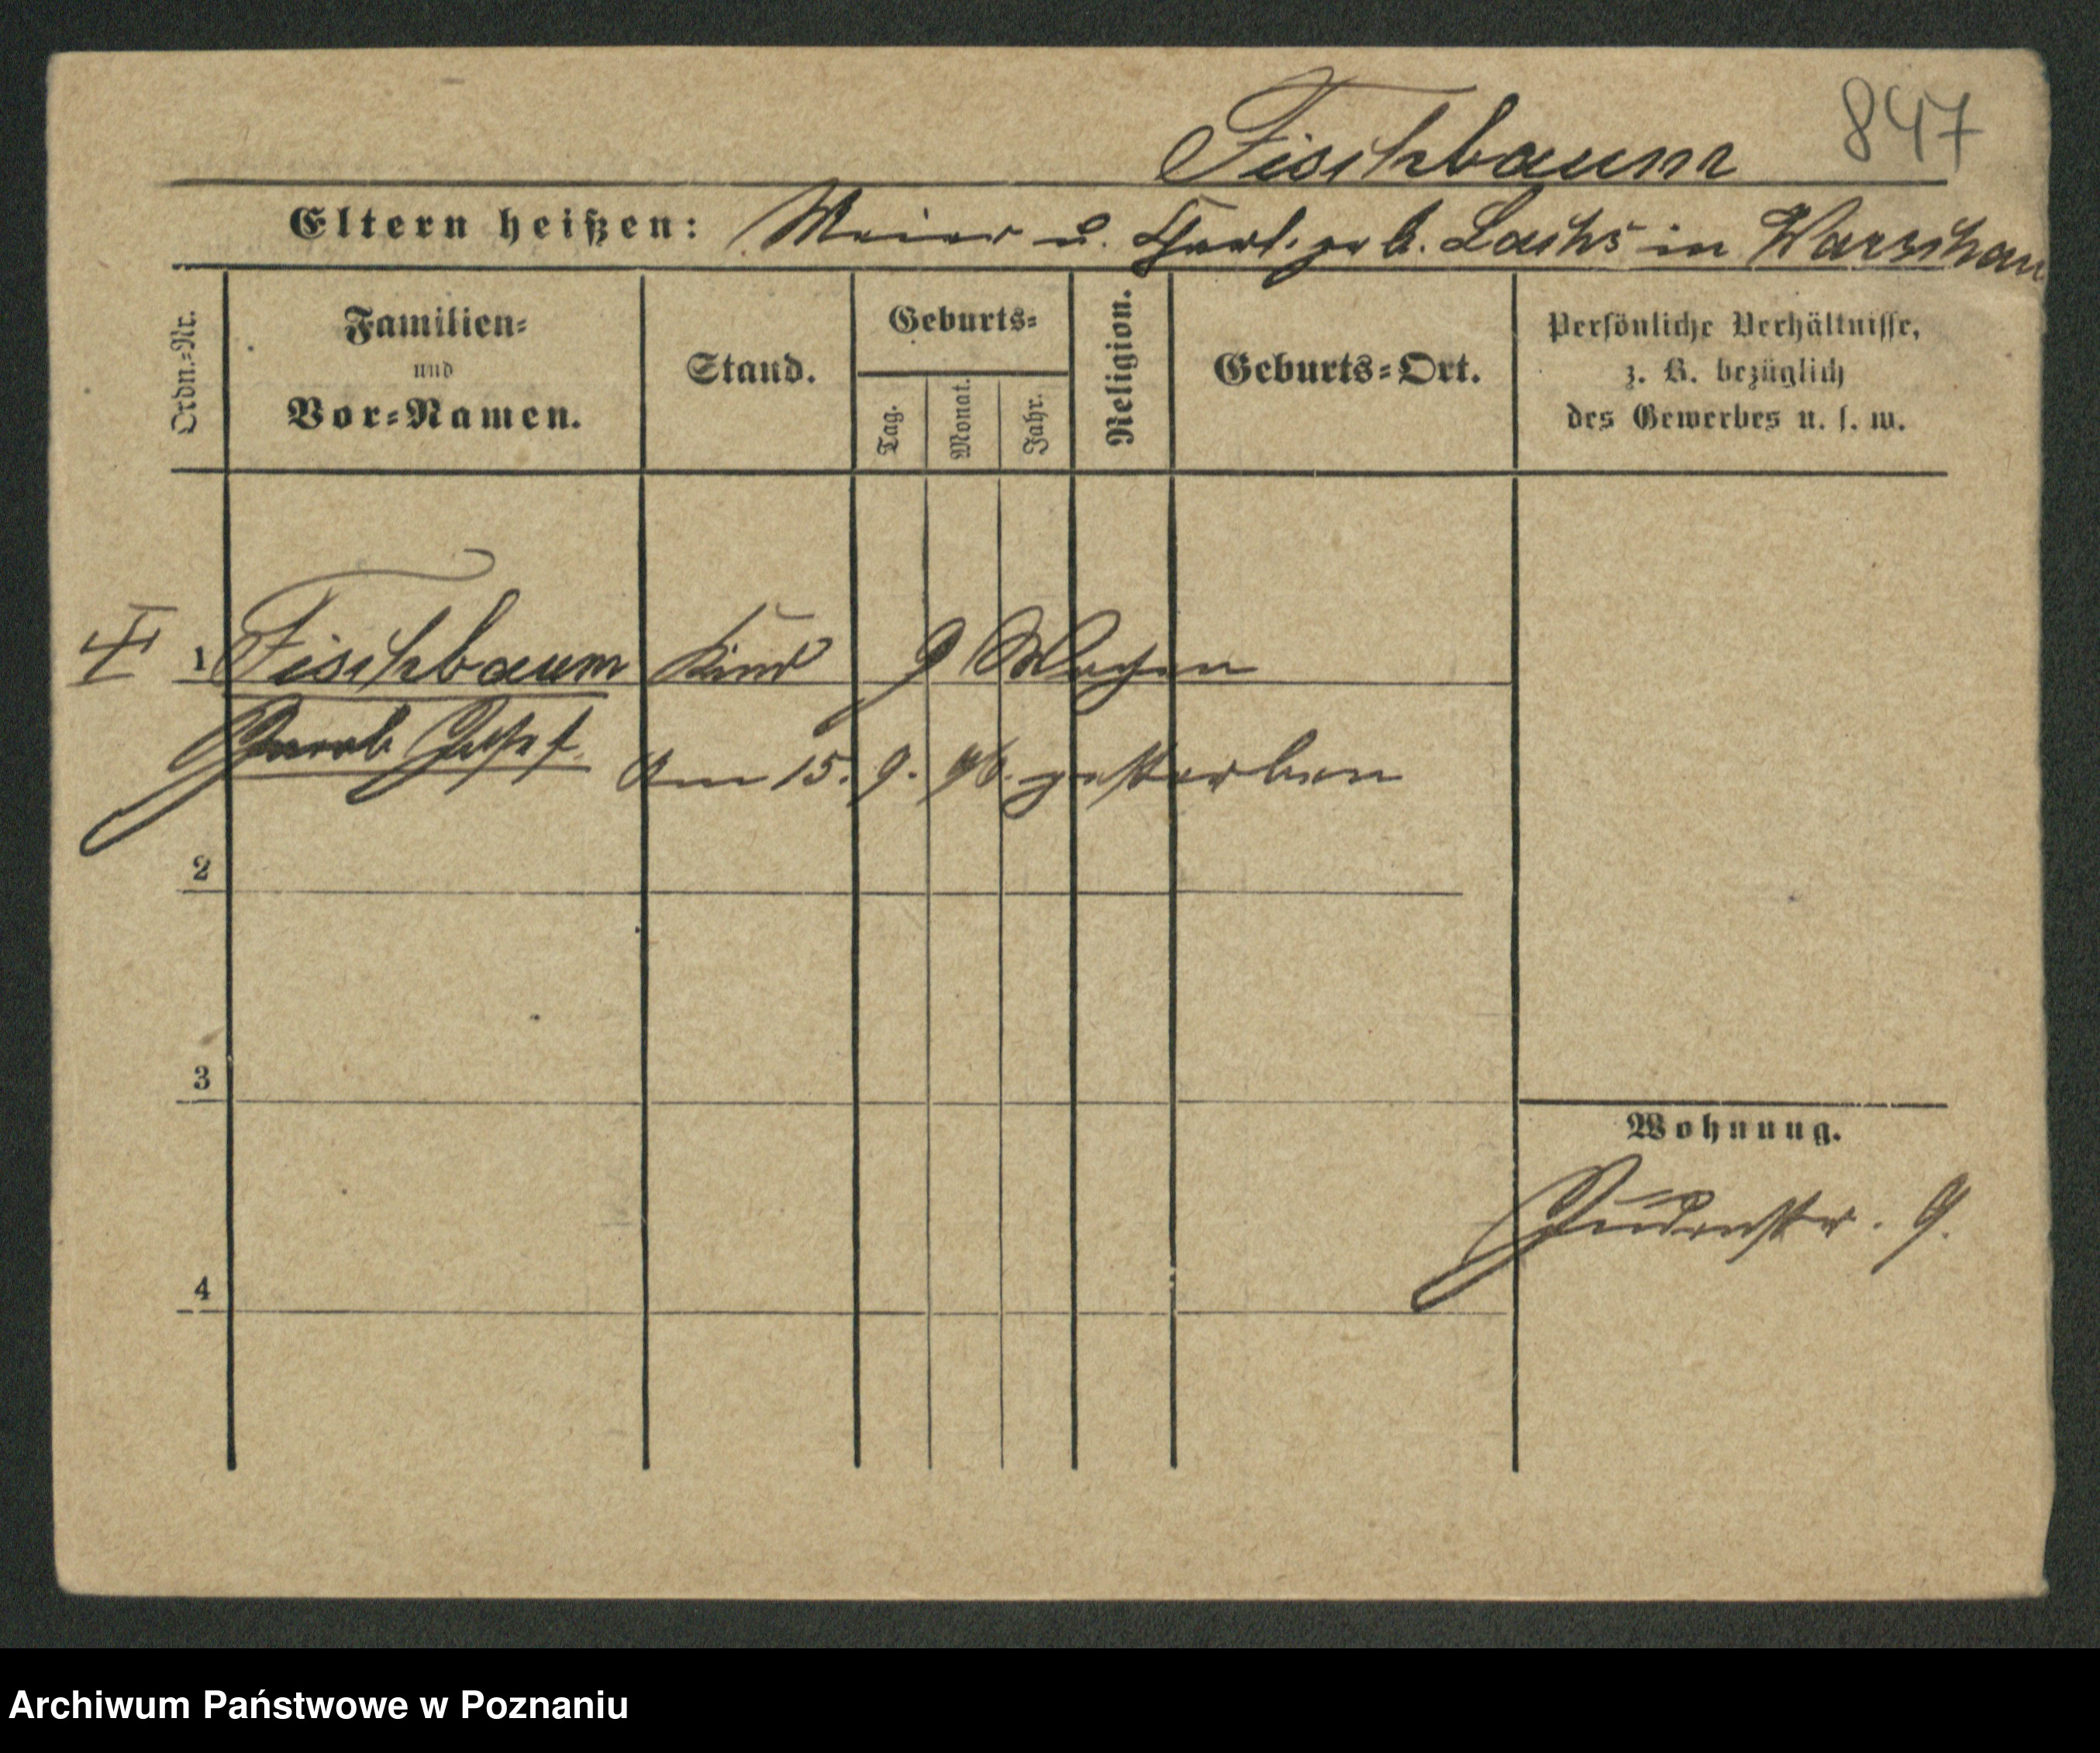 847
Fischbaum
Eltern heißen: Meier u. geb. Lachs in Warschau
Ordn.=Nr.
Familien=
und
Vor=Namen.
Stand.
Geburts=
Tag.
Monat.
Jahr.
Religion.
Geburts=Ort.
Persönliche Verhältnisse,
z. B. bezüglich
des Gewerbes u. s. w.
1 Fischbaum Kind 9 Wochen
Jacob Josef
Am 15. 9. 96. gestorben
2
3
4
Wohnung.
Judenstr. 9.
Archiwum Państwowe w Poznaniu